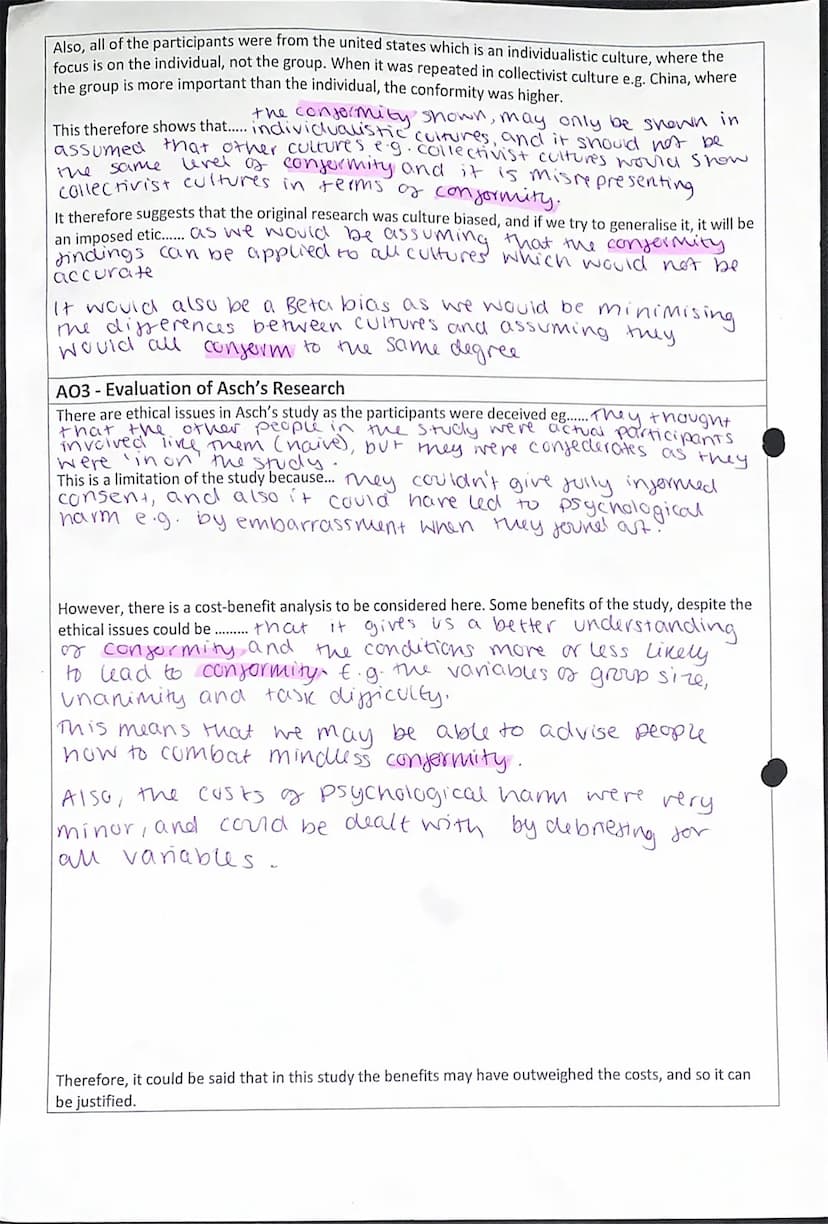 Also, all of the participants were from the united states which is an individualistic culture, where the
focus is on the individual, not the group. When it was repeated in collectivist culture e.g. China, where
the group is more important than the individual, the conformity was higher.
the conformity shown, may only be shown in
This therefore shows that..... individualistic cultures, and it should not be
assumed that other cultures e.g. collectivist cultures would show
the same level of conformity and it is misrepresenting
collectivist cultures in terms of conformity.
It therefore suggests that the original research was culture biased, and if we try to generalise it, it will be
an imposed etic...... as we would be assuming that the conformity
findings can be applied to all cultures which would not be
accurate
It would also be a Beta bias as we would be minimising
the differences between cultures and assuming they
would all conform to the same degree
AO3 - Evaluation of Asch's Research
There are ethical issues in Asch's study as the participants were deceived eg...... They thought
that the other people in the study were actual participants
involved like them (naive), but they were confederates as they
were 'in on' the study.
This is a limitation of the study because... They couldn't give fully informed
consent, and also it could have led to psychological
harm e.g. by embarrassment when they found out.
However, there is a cost-benefit analysis to be considered here. Some benefits of the study, despite the
ethical issues could be ......... that it gives us a better understanding
of conformity and the conditions more or less likely
to lead to conformity. E.g. the variables of group size,
unanimity and task difficulty.
This means that we may be able to advise people
how to combat mindless conformity.
Also, the costs of psychological harm were very
minor, and could be dealt with by debriefing for
all variables.
Therefore, it could be said that in this study the benefits may have outweighed the costs, and so it can
be justified.